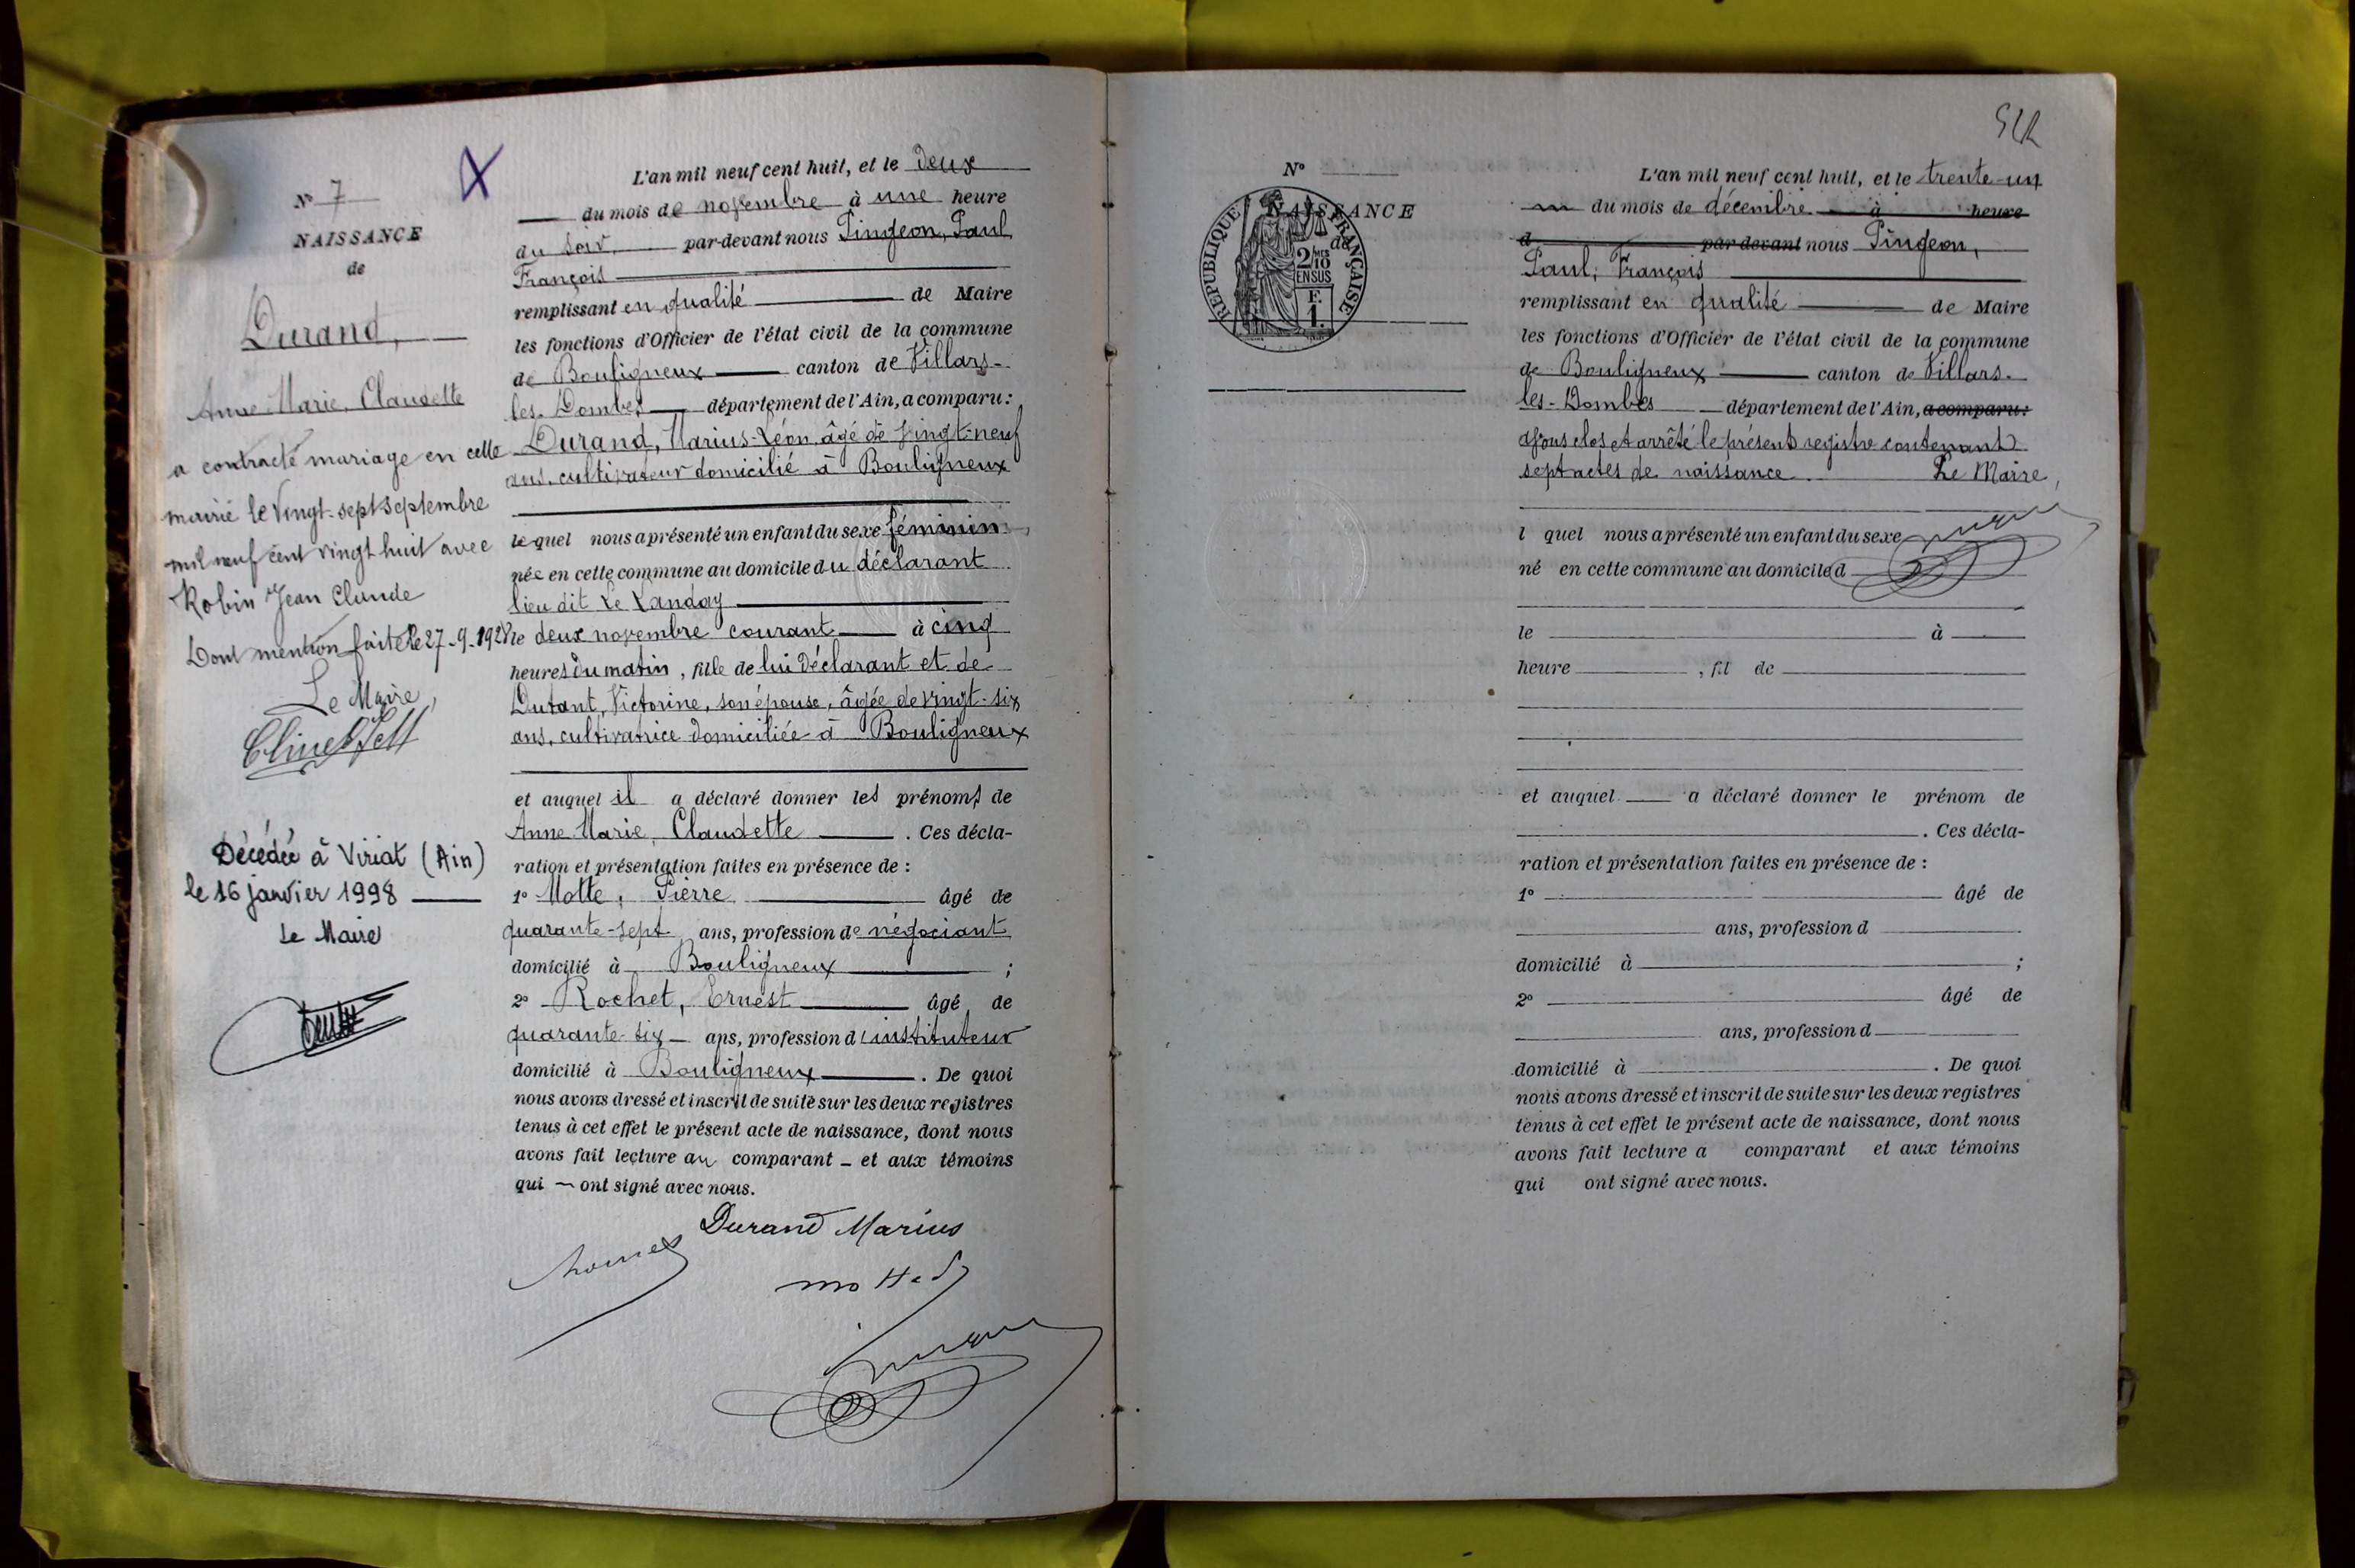 N° 7
NAISSANCE
de
Durand,
Anne-Marie, Claudette
a contracté mariage en cette
mairie le vingt-sept septembre
mil neuf cent vingt huit avec
Robin Jean Claude
Dont mention faite le 27-9-1928
Le Maire,
Décédée à Viriat (Ain)
le 16 janvier 1998
Le Maire
L'an mil neuf cent huit, et le deux
du mois de novembre à une heure
du soir, par-devant nous Pingeon, Paul,
François
remplissant en qualité de Maire
les fonctions d'Officier de l'état civil de la commune
de Bouligneux canton de Villars-
les-Dombes département de l'Ain, a comparu:
Durand, Marius-Léon, âgé de vingt-neuf
ans, cultivateur domicilié à Bouligneux
lequel nous a présenté un enfant du sexe féminin
née en cette commune au domicile du déclarant
lieu dit Le Landay
le deux novembre courant à cinq
heures du matin, fille de lui déclarant et de
Dutant, Victorine, son épouse, âgée de vingt-six
ans, cultivatrice domiciliée à Bouligneux
et auquel il a déclaré donner les prénoms de
Anne Marie, Claudette. Ces décla-
ration et présentation faites en présence de :
1° Motte, Pierre âgé de
quarante-sept ans, profession de négociant
domicilié à Bouligneux ;
2° Rochet, Ernest âgé de
quarante-six ans, profession d'instituteur
domicilié à Bouligneux. De quoi
nous avons dressé et inscrit de suite sur les deux registres
tenus à cet effet le présent acte de naissance, dont nous
avons fait lecture au comparant et aux témoins
qui ont signé avec nous.
Durand Marius
N°
NAISSANCE
de
REPUBLIQUE FRANÇAISE
2/10
EN SUS
F.
1.
L'an mil neuf cent huit, et le trente-un
du mois de décembre à heure
d par devant nous Pingeon,
Paul, François
remplissant en qualité de Maire
les fonctions d'Officier de l'état civil de la commune
de Bouligneux canton de Villars-
les-Dombes département de l'Ain, a comparu:
avons clos et arrêté le présent registre contenant
sept actes de naissance. Le Maire,
l quel nous a présenté un enfant du sexe
né en cette commune au domicile d
le à
heure , fil de
et auquel a déclaré donner le prénom de
. Ces décla-
ration et présentation faites en présence de :
1° âgé de
ans, profession d
domicilié à ;
2° âgé de
ans, profession d
domicilié à . De quoi
nous avons dressé et inscrit de suite sur les deux registres
tenus à cet effet le présent acte de naissance, dont nous
avons fait lecture a comparant et aux témoins
qui ont signé avec nous.